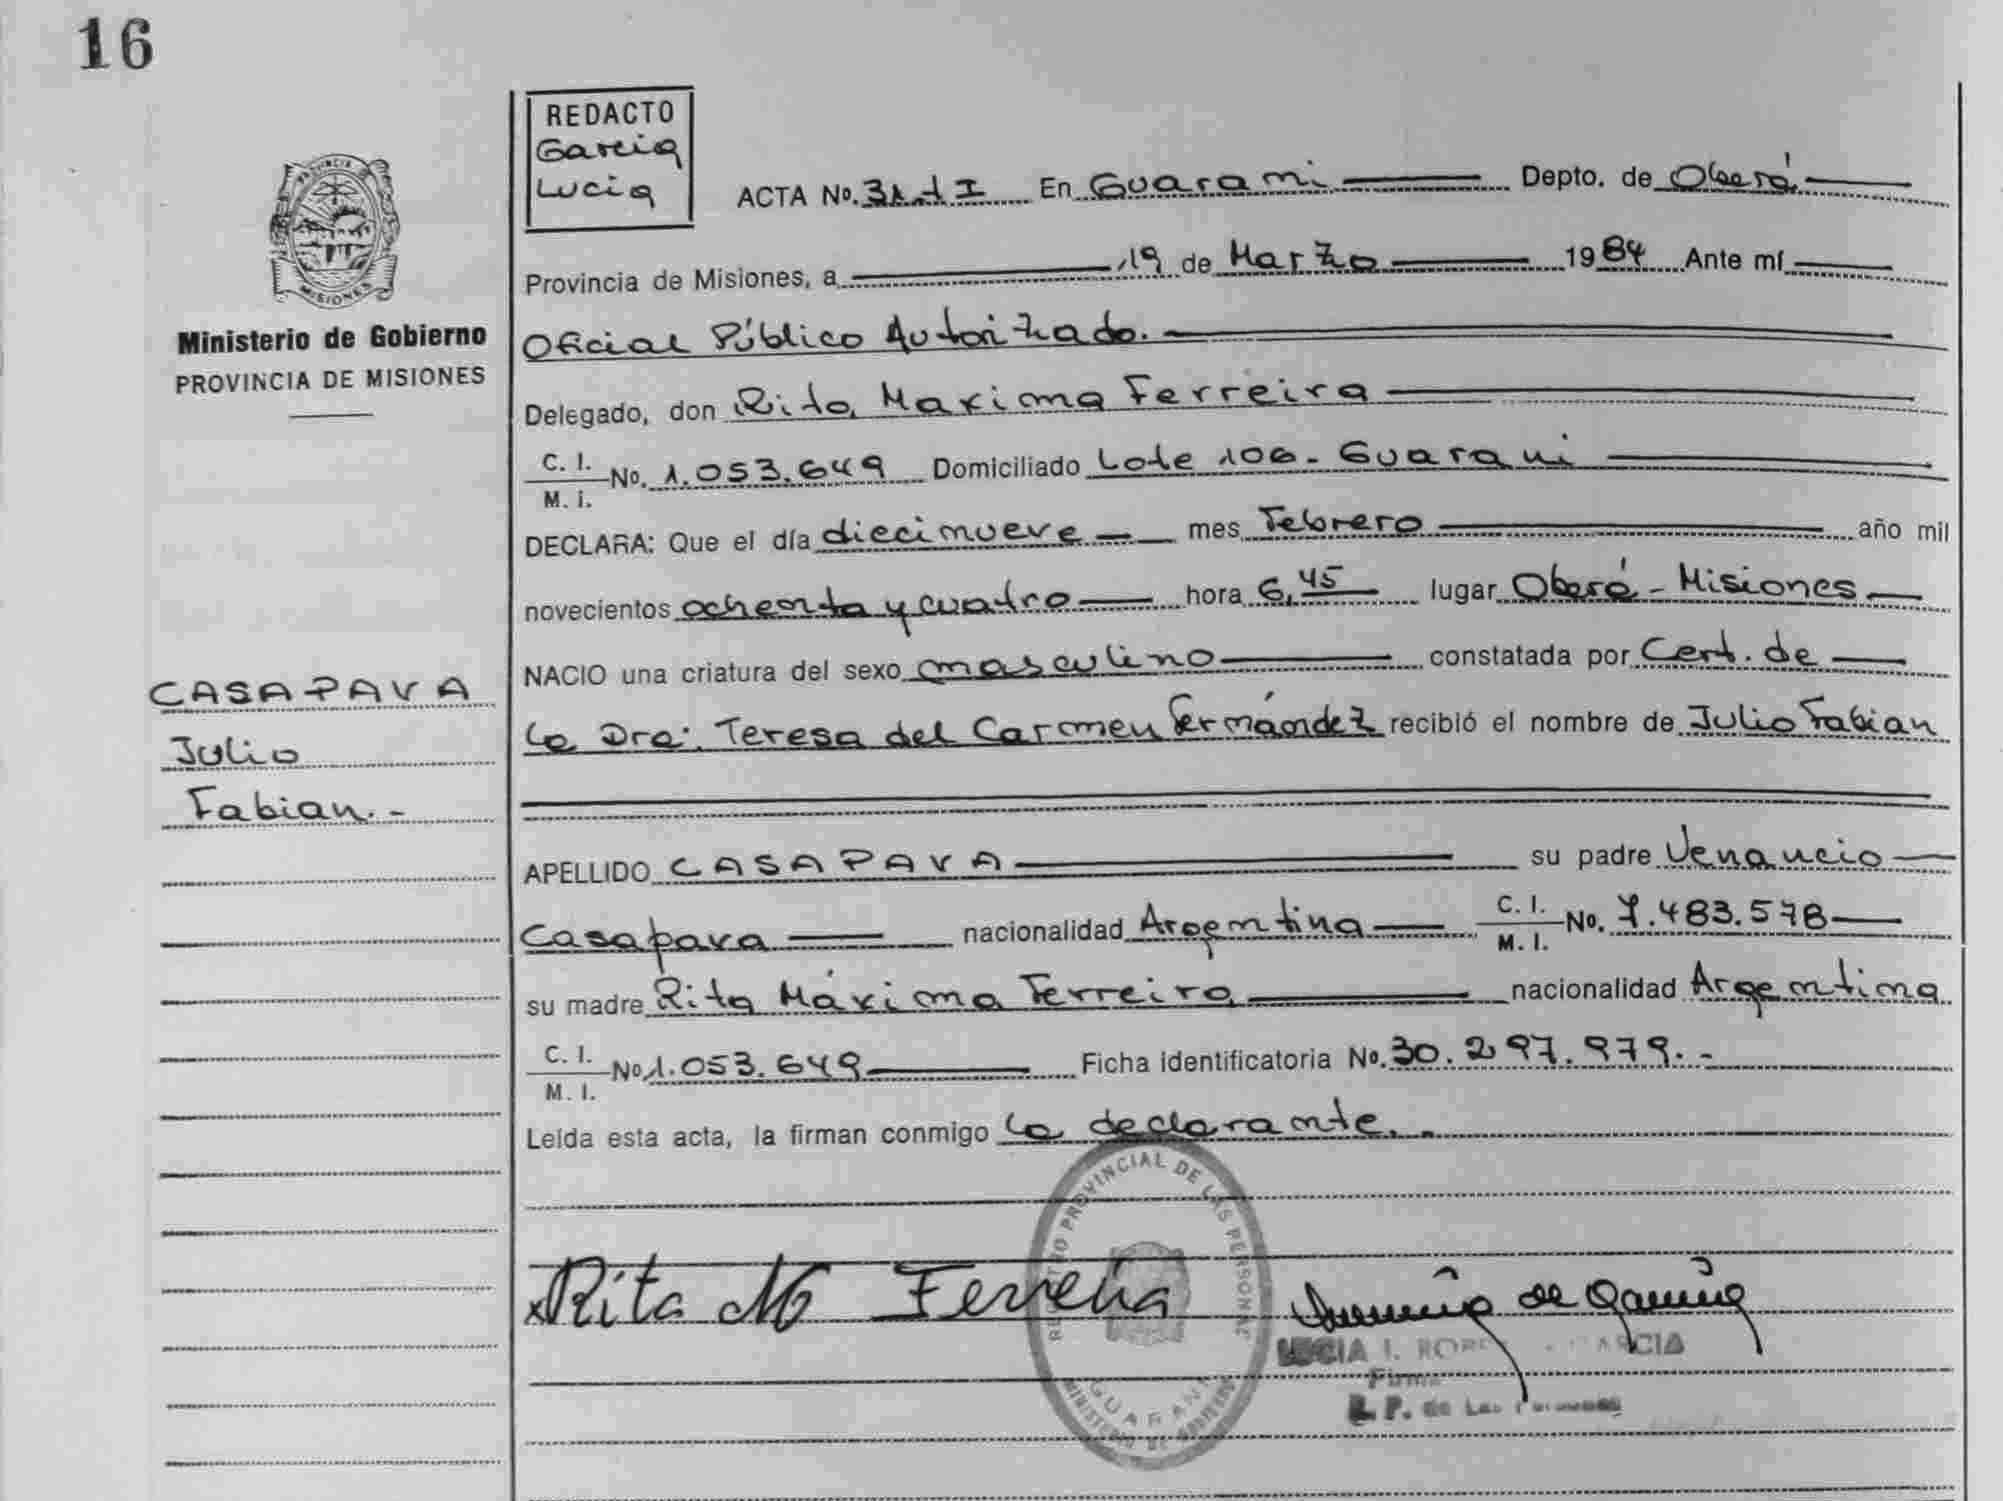 16
REDACTO
Garcia
Lucia
ACTA No. 31-t I En Guarani Depto. de Oberá
PROVINCIA
MISIONES
Ministerio de Gobierno
PROVINCIA DE MISIONES
Provincia de Misiones, a 19 de Marzo 1984 Ante mí
Oficial Público Autorizado.
Delegado, don Rita Maxima Ferreira
C. I. / M. I. No. 1.053.649 Domiciliado Lote 106 - Guarani
DECLARA: Que el día diecinueve mes Febrero año mil
novecientos ochenta y cuatro hora 6,45 lugar Oberá - Misiones
NACIO una criatura del sexo masculino constatada por Cert. de
la Dra. Teresa del Carmen Fernández recibió el nombre de Julio Fabian
CASAPAVA
Julio
Fabian.-
APELLIDO CASAPAVA su padre Venancio
Casapava nacionalidad Argentina C. I. / M. I. No. 7.483.578
su madre Rita Máxima Ferreira nacionalidad Argentina
C. I. / M. I. No 1.053.649 Ficha identificatoria No. 30.297.979.-
Leída esta acta, la firman conmigo la declarante.-
REGISTRO PROVINCIAL DE LAS PERSONAS
GUARANI
MINISTERIO DE GOBIERNO
x Rita M Ferreira
de Garcia
LUCIA I. GARCIA
Firma
R. P. de Las Personas